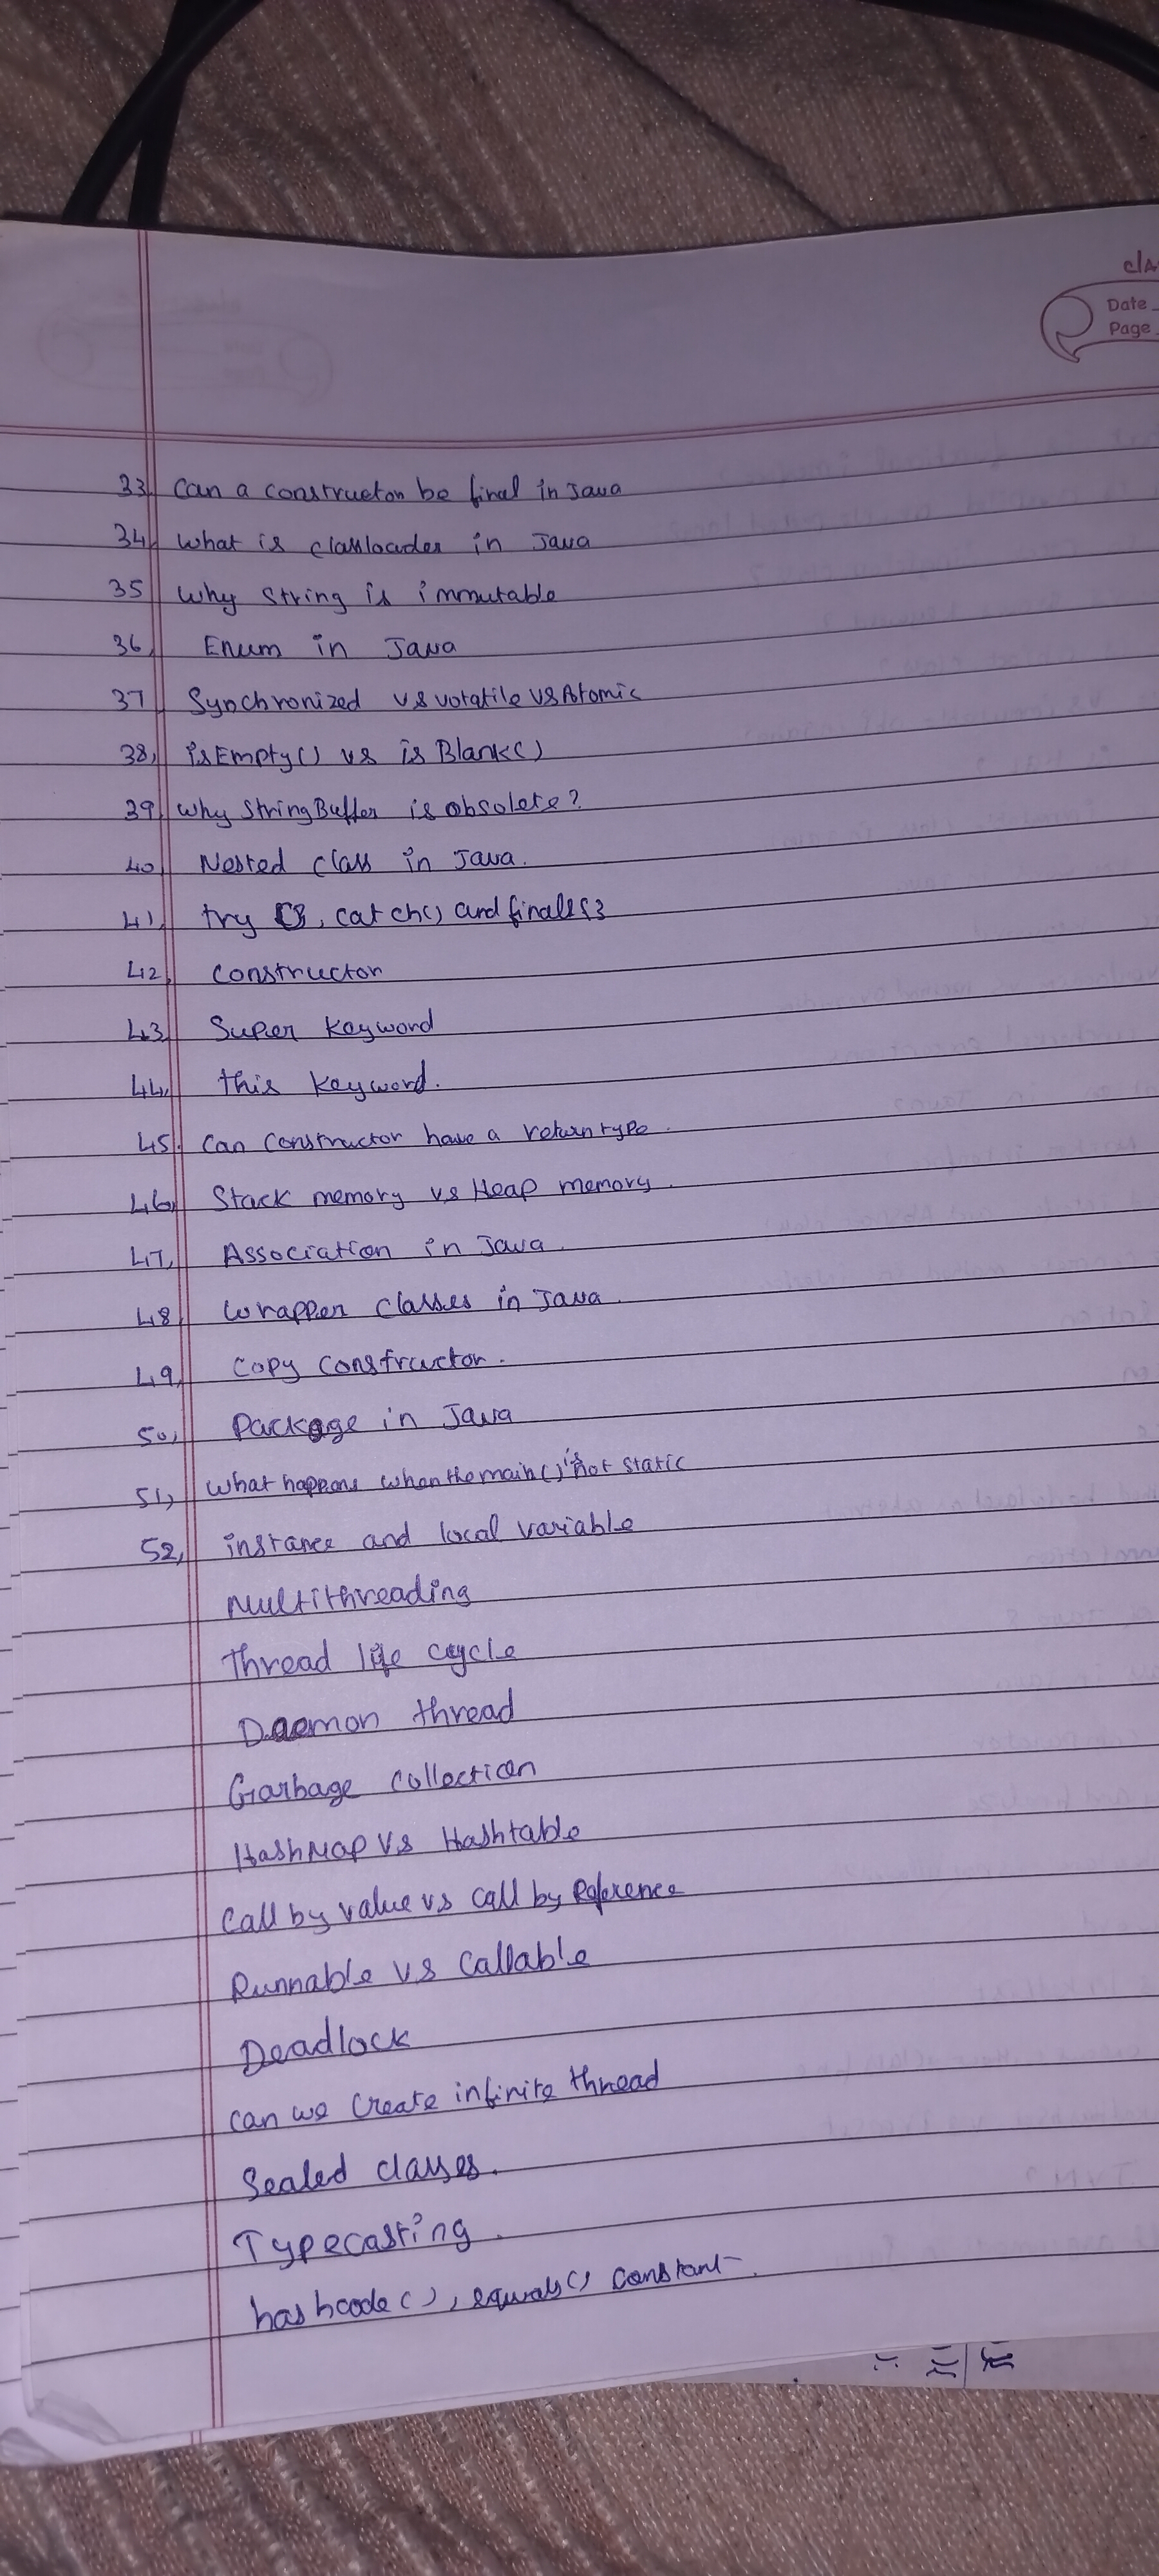 cla
Date
Page
33, Can a constructor be final in Java
34, What is classloader in Java
35, Why String is immutable
36, Enum in Java
37, Synchronized vs volatile vs Atomic
38, isEmpty() vs isBlank()
39, Why StringBuffer is obsolete?
40, Nested class in Java.
41, try {}, catch() and finall{}
42, constructor
43, Super keyword
44, this keyword.
45, Can Constructor have a return type.
46, Stack memory vs Heap memory.
47, Association in Java.
48, Wrapper classes in Java.
49, Copy Constructor.
50, Package in Java
51, What happens when the main() is not static
52, instance and local variable
Multithreading
Thread life cycle
Daemon thread
Garbage Collection
HashMap vs Hashtable
Call by value vs call by Reference
Runnable vs Callable
Deadlock
can we Create infinite thread
Sealed classes.
Typecasting.
hashcode(), equals() Constant.